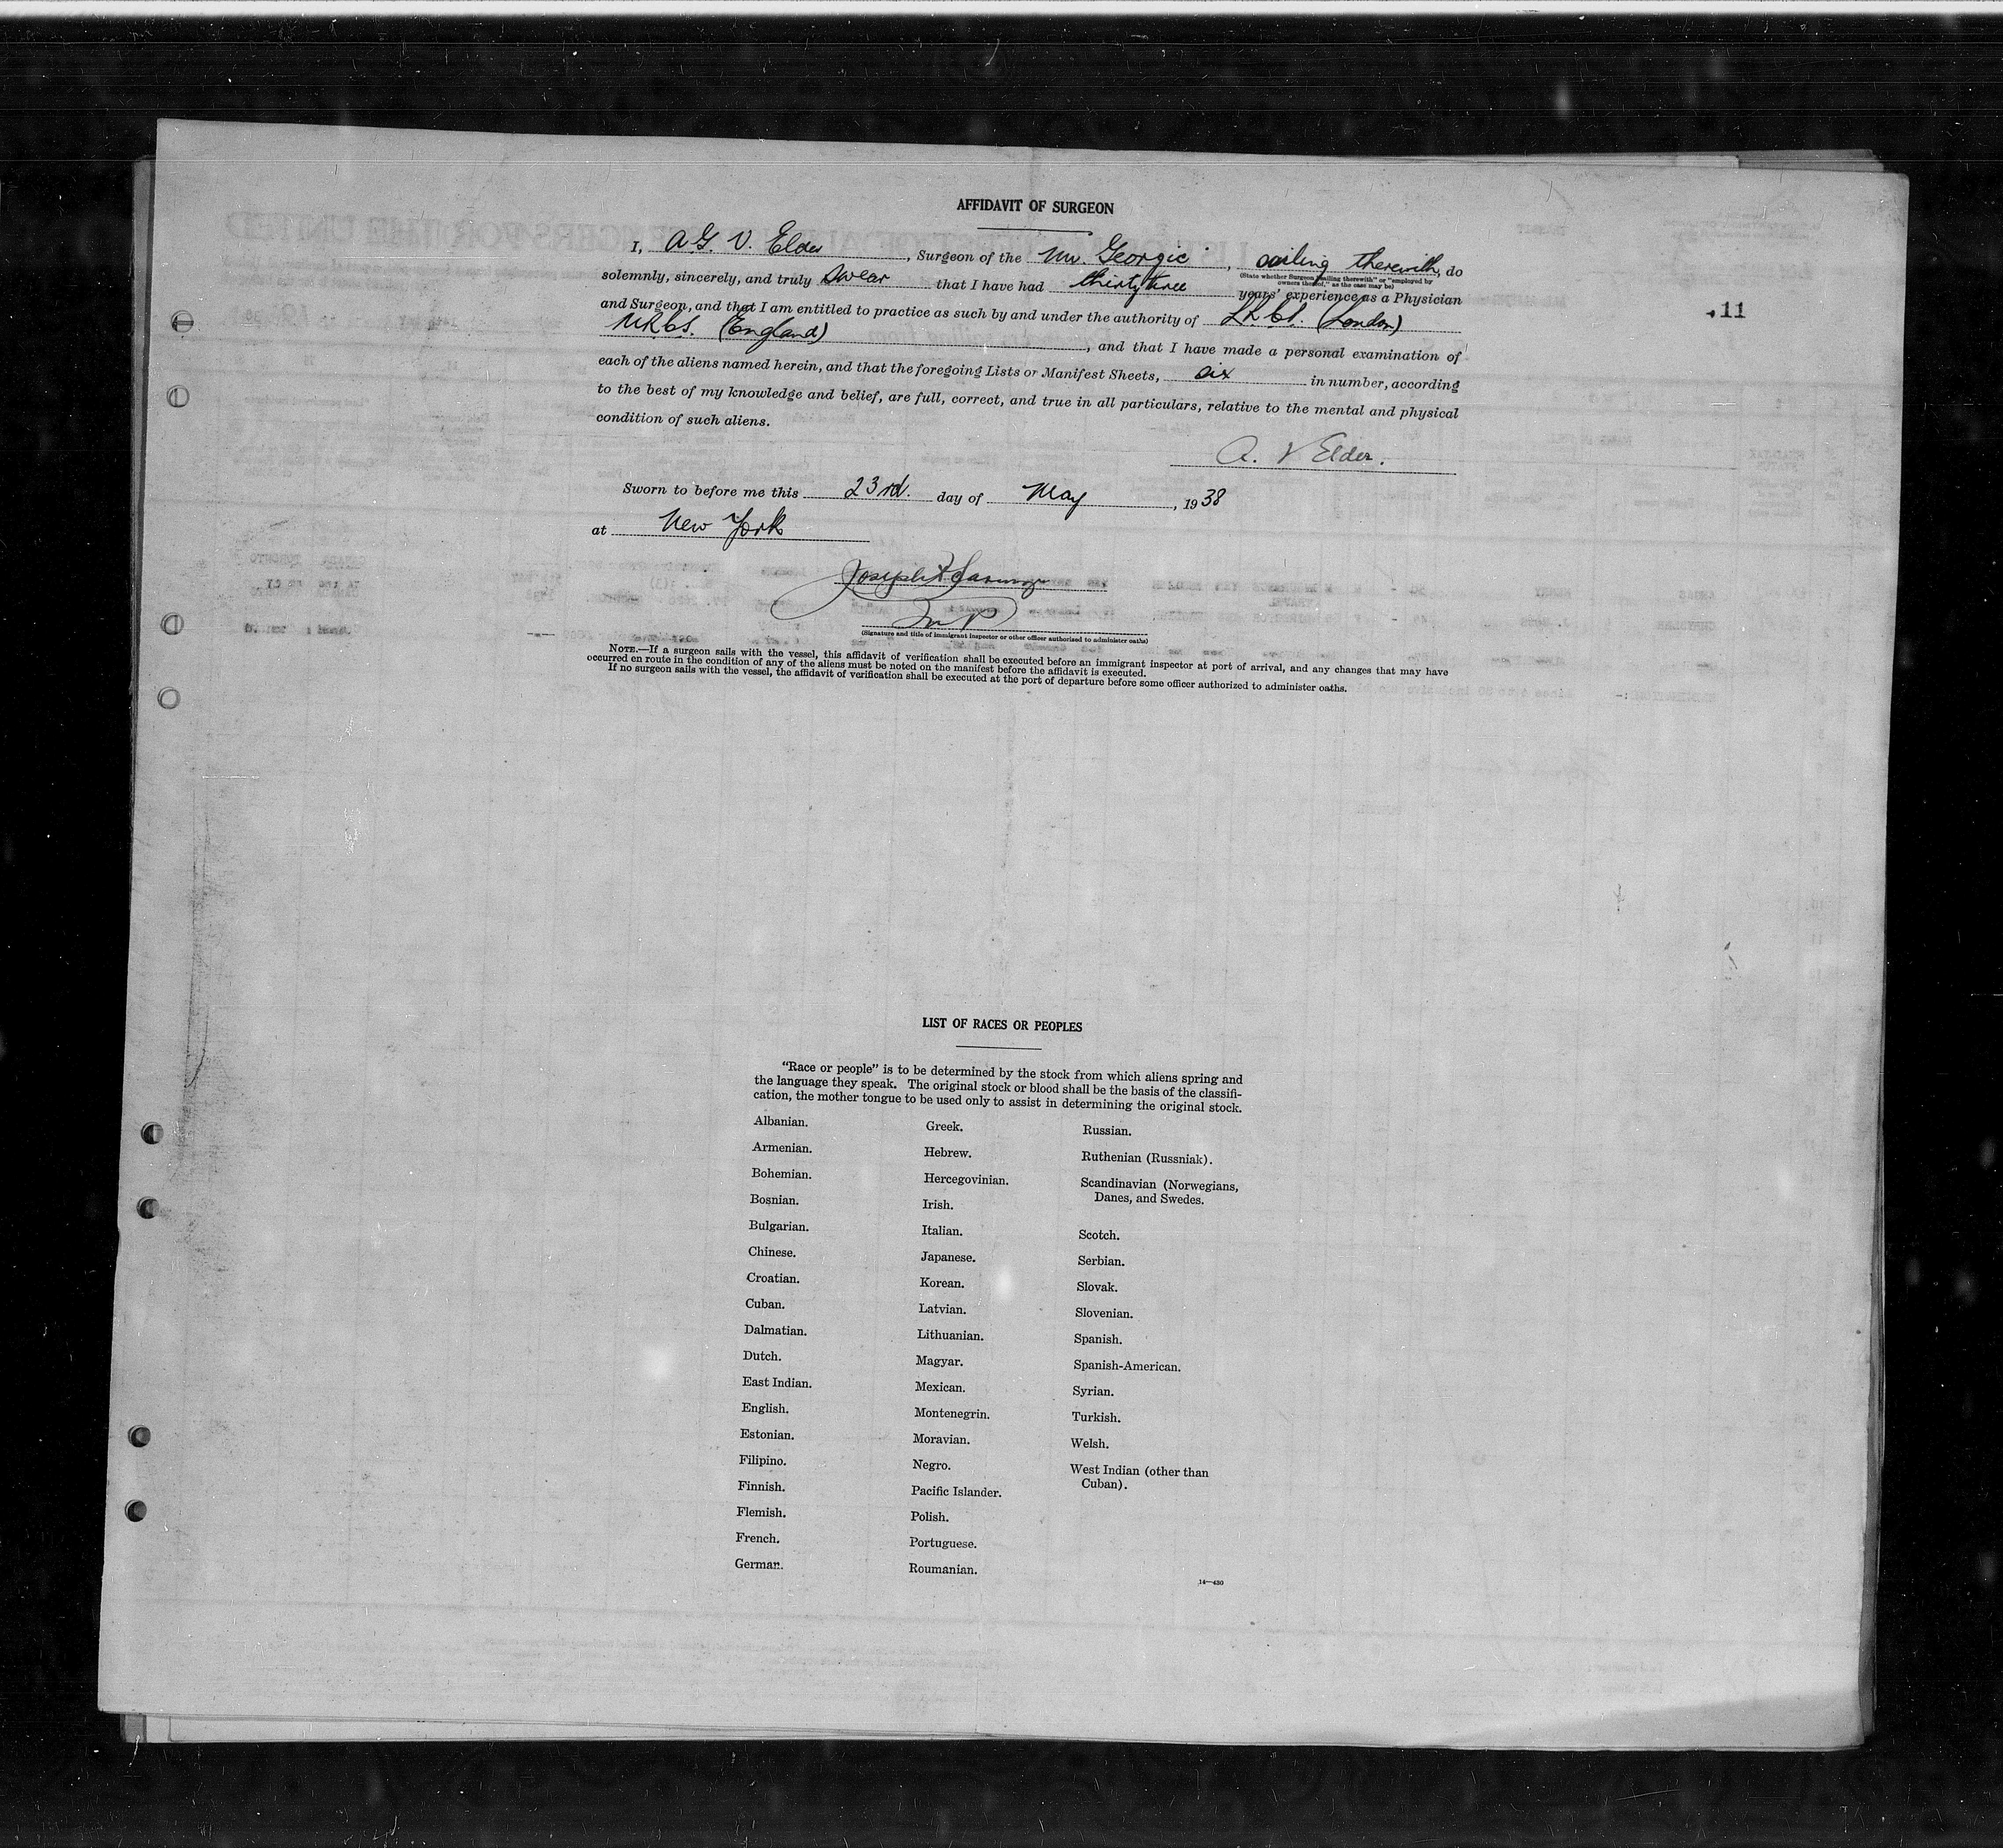 AFFIDAVIT OF SURGEON
I, A G. V. Elder, Surgeon of the Mv. Georgic, sailing therewith, do
(State whether Surgeon "sailing therewith" or "employed by
owners thereof," as the case may be)
solemnly, sincerely, and truly swear that I have had thirty three years' experience as a Physician
11
and Surgeon, and that I am entitled to practice as such by and under the authority of (London)
(England), and that I have made a personal examination of
each of the aliens named herein, and that the foregoing Lists or Manifest Sheets, six in number, according
to the best of my knowledge and belief, are full, correct, and true in all particulars, relative to the mental and physical
condition of such aliens.
A. V Elder.
Sworn to before me this 23rd. day of May, 1938
at New York
Joseph
(Signature and title of immigrant inspector or other officer authorized to administer oaths)
NOTE.—If a surgeon sails with the vessel, this affidavit of verification shall be executed before an immigrant inspector at port of arrival, and any changes that may have
occurred en route in the condition of any of the aliens must be noted on the manifest before the affidavit is executed.
If no surgeon sails with the vessel, the affidavit of verification shall be executed at the port of departure before some officer authorized to administer oaths.
LIST OF RACES OR PEOPLES
"Race or people" is to be determined by the stock from which aliens spring and
the language they speak. The original stock or blood shall be the basis of the classifi-
cation, the mother tongue to be used only to assist in determining the original stock.
Albanian.
Armenian.
Bohemian.
Bosnian.
Bulgarian.
Chinese.
Croatian.
Cuban.
Dalmatian.
Dutch.
East Indian.
English.
Estonian.
Filipino.
Finnish.
Flemish.
French.
German.
Greek.
Hebrew.
Hercegovinian.
Irish.
Italian.
Japanese.
Korean.
Latvian.
Lithuanian.
Magyar.
Mexican.
Montenegrin.
Moravian.
Negro.
Pacific Islander.
Polish.
Portuguese.
Roumanian.
Russian.
Ruthenian (Russniak).
Scandinavian (Norwegians,
Danes, and Swedes.
Scotch.
Serbian.
Slovak.
Slovenian.
Spanish.
Spanish-American.
Syrian.
Turkish.
Welsh.
West Indian (other than
Cuban).
14—430